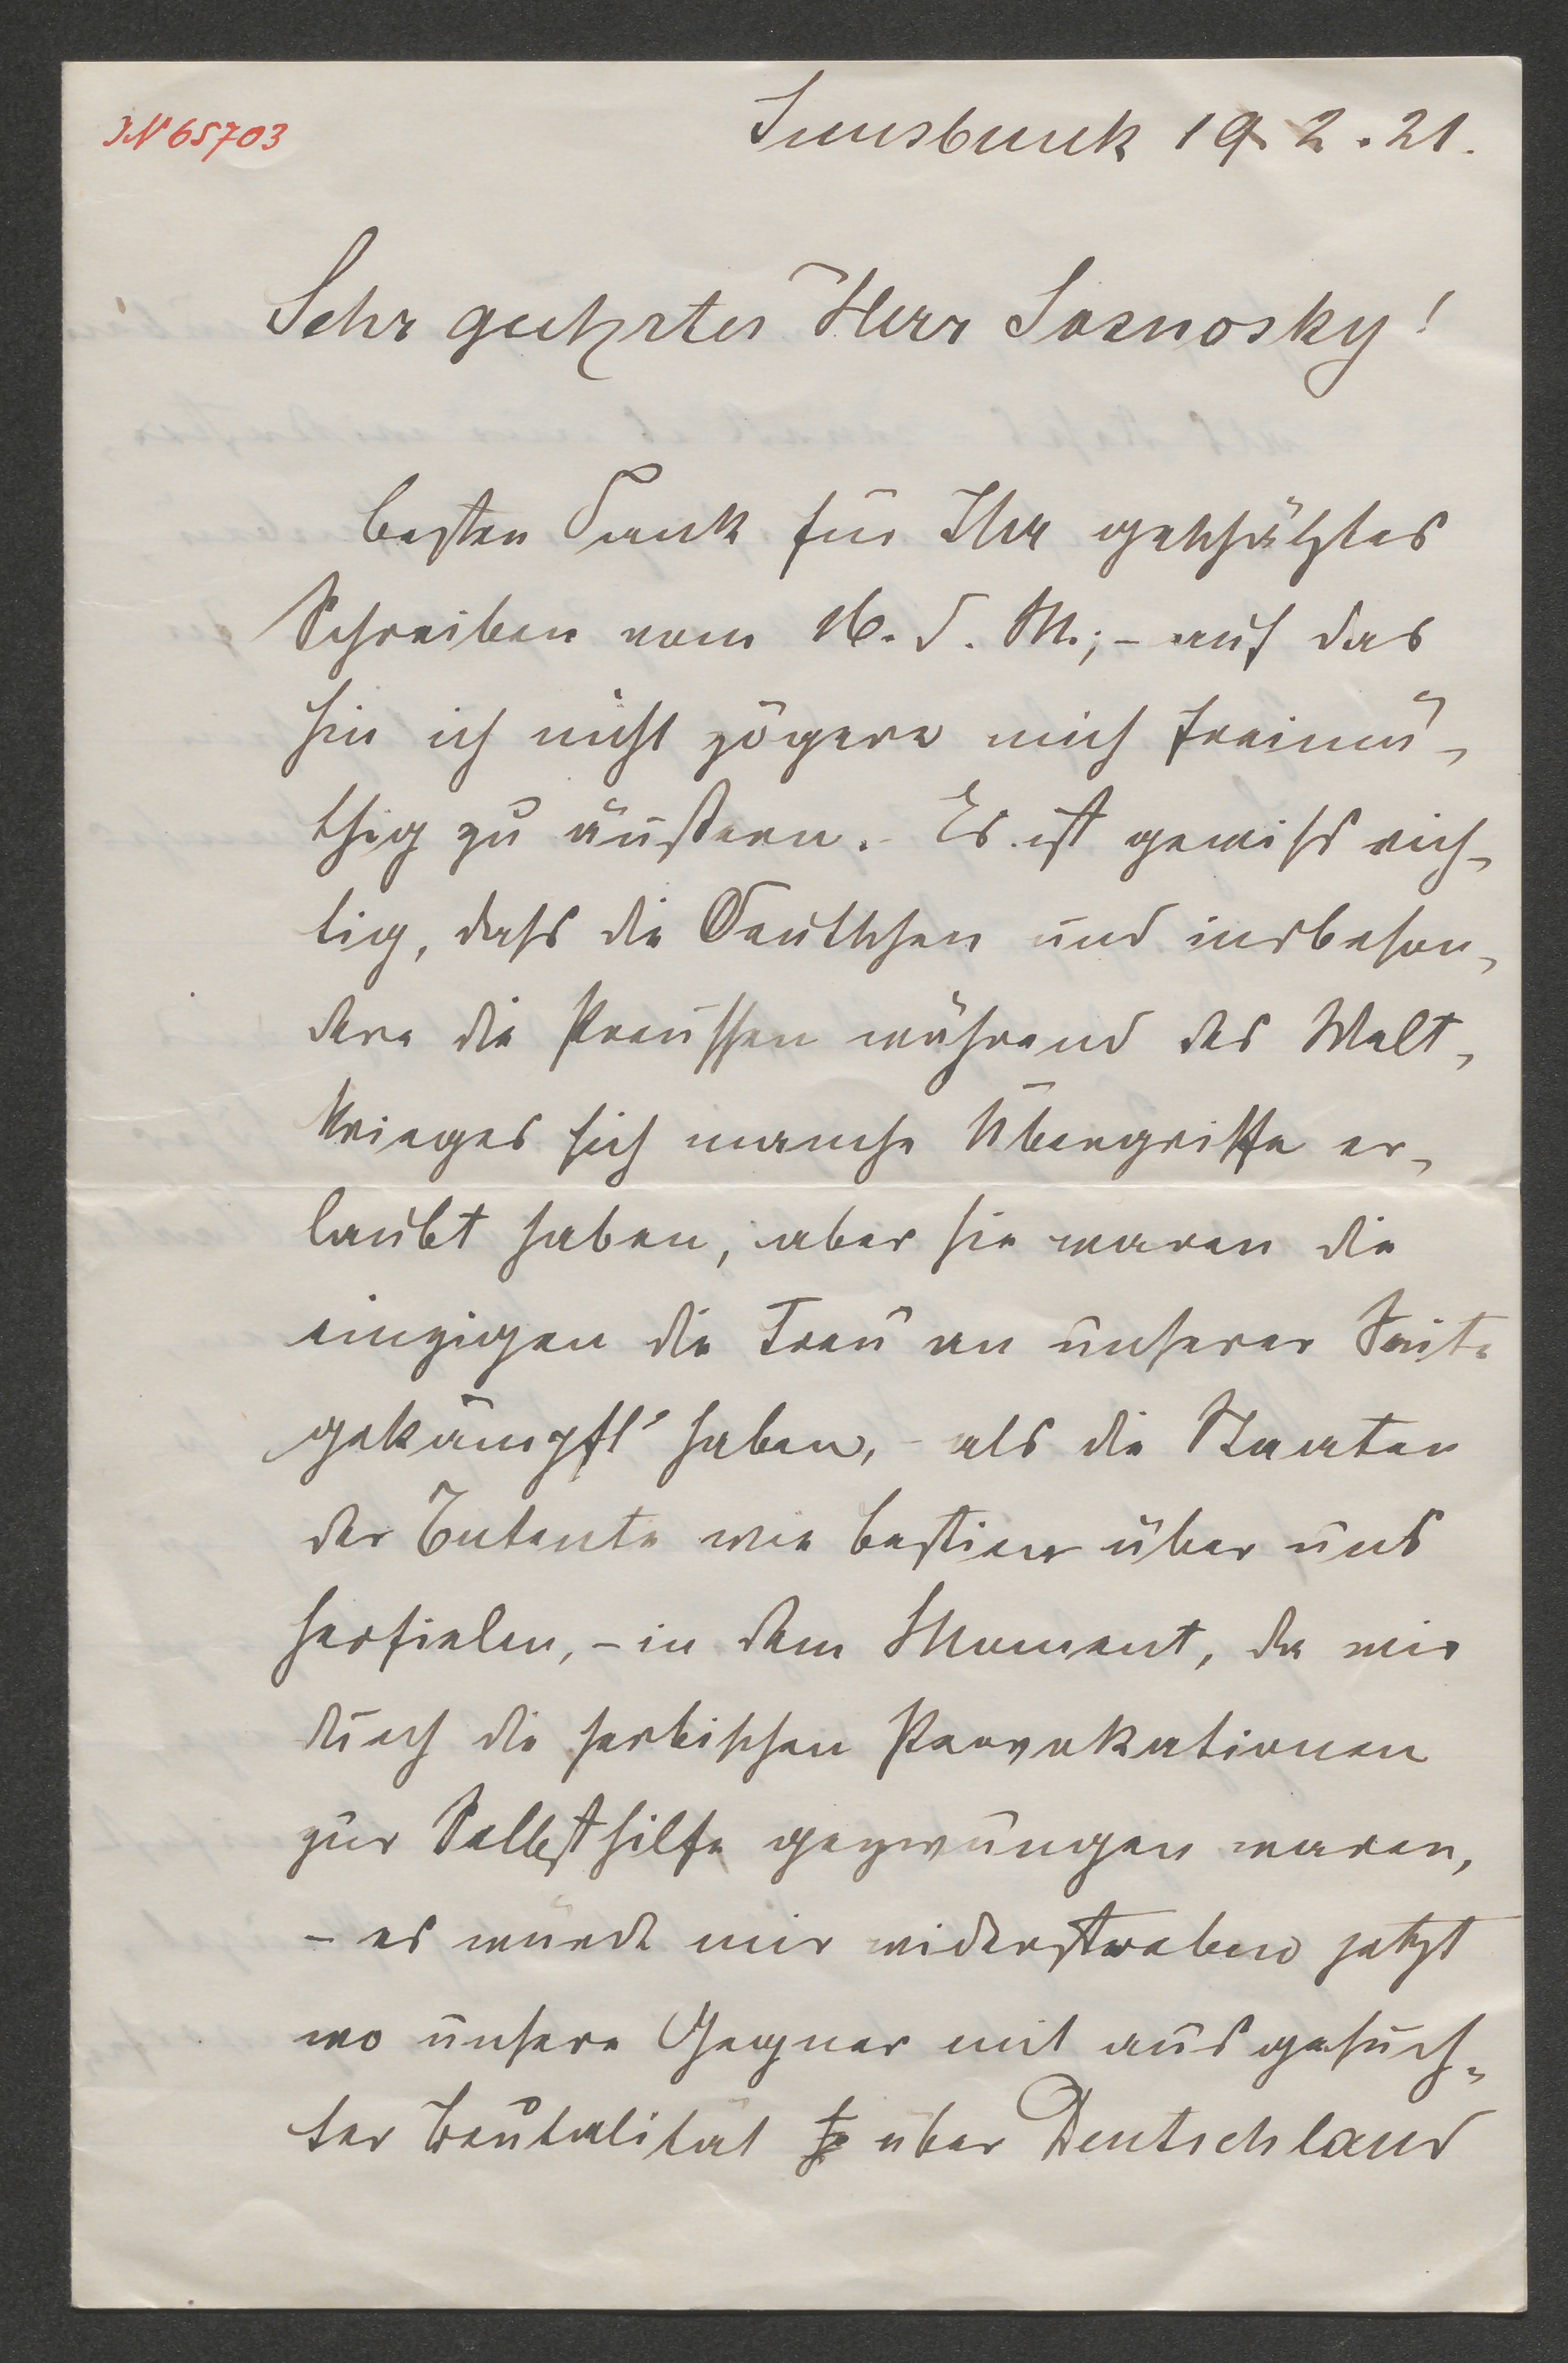 IN 65703
Innsbruck 19.2.21.
Sehr geehrter Herr Sosnosky!
besten Dank für Ihr geschätztes
Schreiben vom 16. d. M.; – auf das
hin ich nicht zögere mich freimü-
thig zu äußern. – Es ist gewiss rich-
tig, dass die Deutschen und insbeson-
dere die Preussen während des Welt-
krieges sich manche Übergriffe er-
laubt haben, aber sie waren die
einzigen die treu an unserer Seite
gekämpft haben, – als die Staaten
der Entente wie Bestien über uns
herfielen, – in dem Moment, da wir
durch die serbischen Provokationen
zur Selbsthilfe gezwungen waren,
– es würde mir widerstreben jetzt
wo unsere Gegner mit ausgesuch-
ter Brutalität über Deutschland